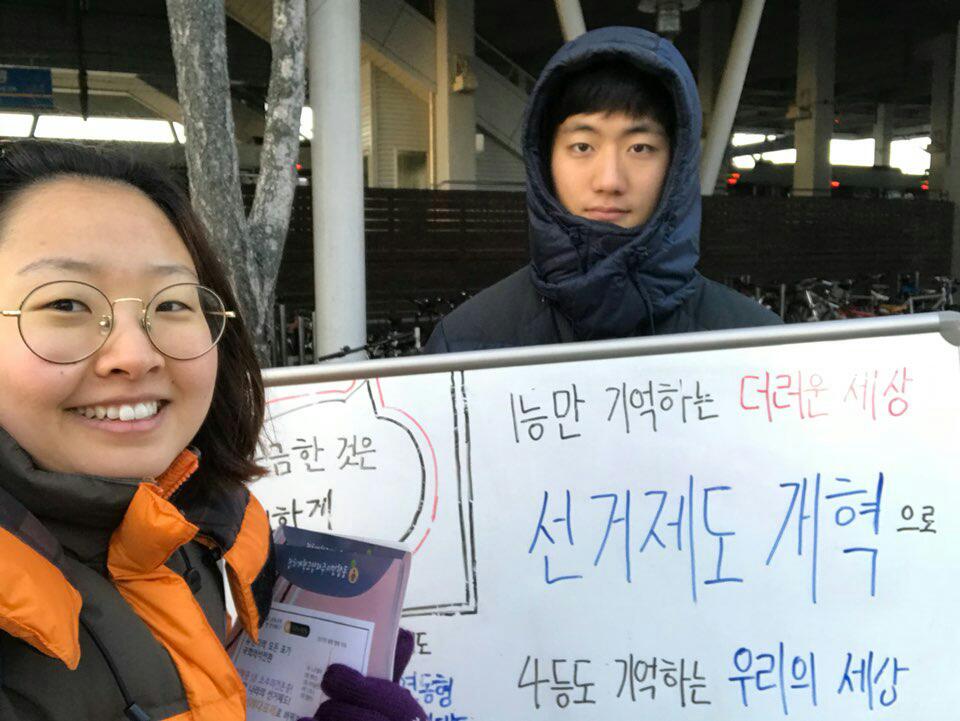 금한 것은
하게
1등만 기억하는 더러운 세상
선거제도 개혁으로
4등도 기억하는 우리의 세상
도
연동형
모든 표가